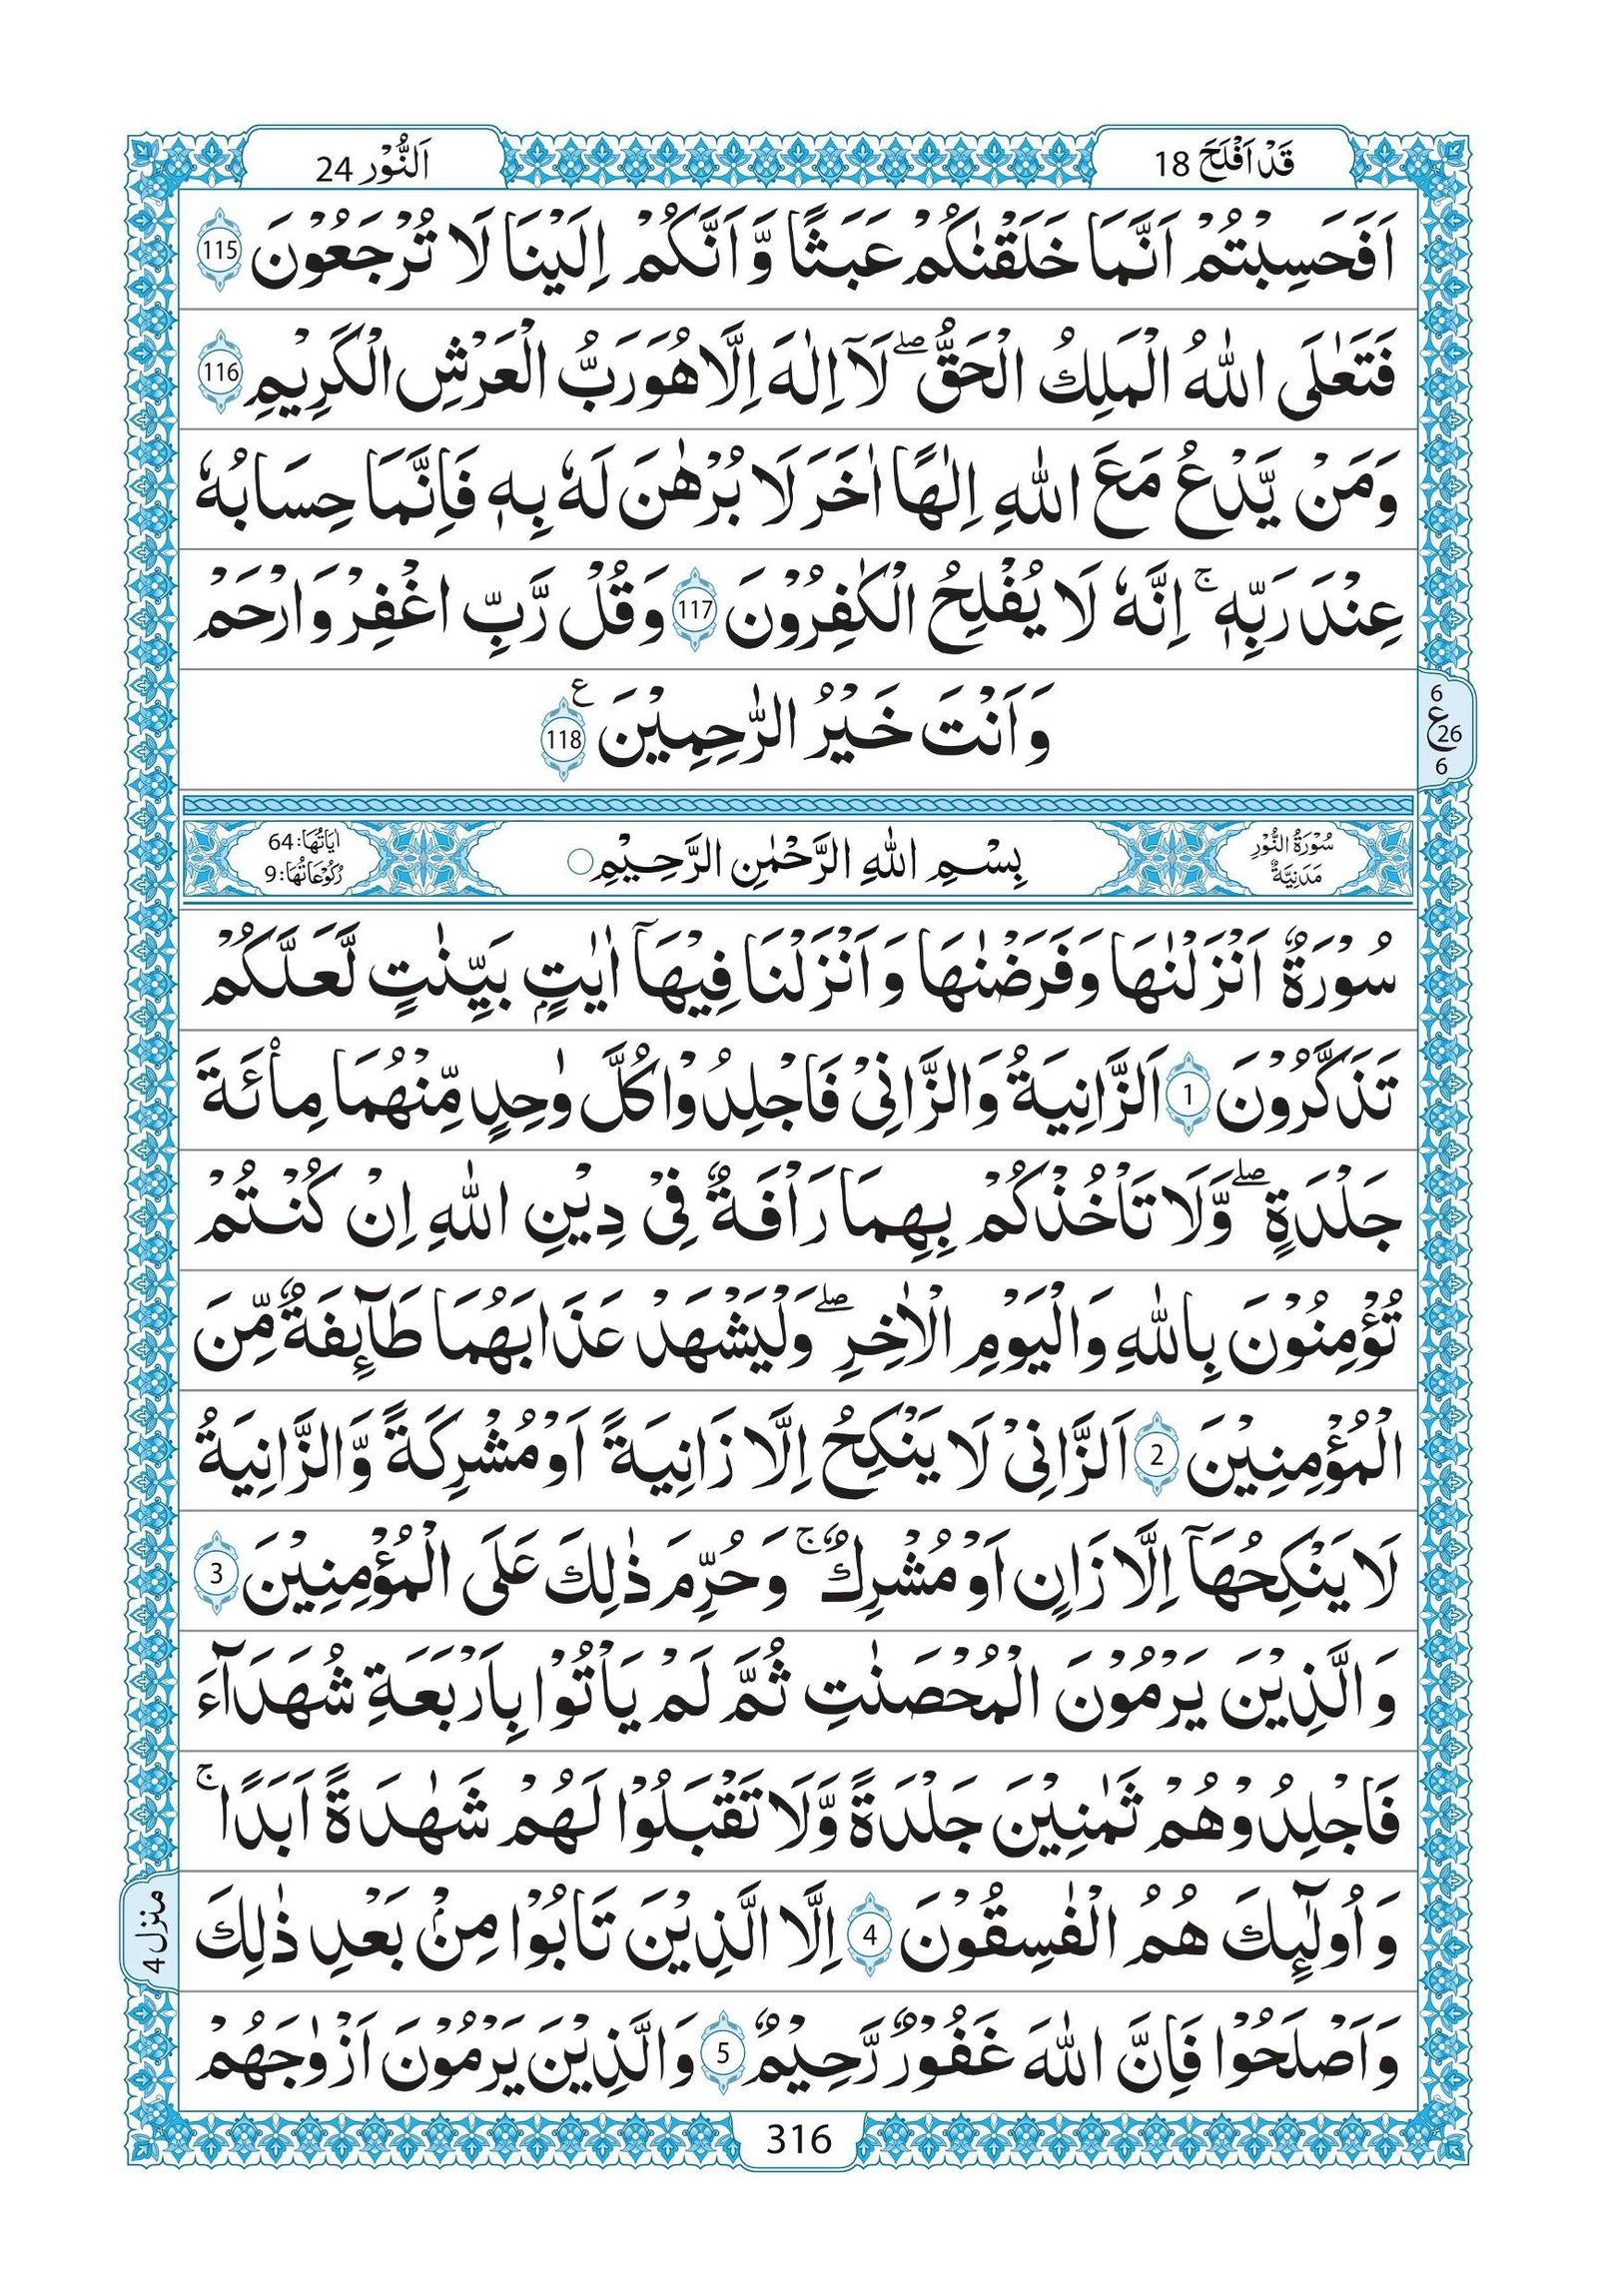 قَدْ اَفْلَحَ 18
اَلنُّوْر 24
اَفَحَسِبْتُمْ اَنَّمَا خَلَقْنٰكُمْ عَبَثًا وَّ اَنَّكُمْ اِلَيْنَا لَا تُرْجَعُوْنَ 115
فَتَعٰلَى اللّٰهُ الْمَلِكُ الْحَقُّ ۖ لَاۤ اِلٰهَ اِلَّا هُوَ رَبُّ الْعَرْشِ الْكَرِيْمِ 116
وَمَنْ يَّدْعُ مَعَ اللّٰهِ اِلٰهًا اٰخَرَ لَا بُرْهٰنَ لَهٗ بِهٖ فَاِنَّمَا حِسَابُهٗ
عِنْدَ رَبِّهٖ ۚ اِنَّهٗ لَا يُفْلِحُ الْكٰفِرُوْنَ 117 وَقُلْ رَّبِّ اغْفِرْ وَارْحَمْ
وَ اَنْتَ خَيْرُ الرّٰحِمِيْنَ ع 118
6
ع 26
6
سُوْرَةُ النُّوْرِ
مَدَنِيَّةٌ
بِسْمِ اللّٰهِ الرَّحْمٰنِ الرَّحِيْمِ
اٰيَاتُهَا: 64
رُكُوْعَاتُهَا: 9
سُوْرَةٌ اَنْزَلْنٰهَا وَفَرَضْنٰهَا وَ اَنْزَلْنَا فِيْهَاۤ اٰيٰتٍۭ بَيِّنٰتٍ لَّعَلَّكُمْ
تَذَكَّرُوْنَ 1 اَلزَّانِيَةُ وَالزَّانِىْ فَاجْلِدُوْا كُلَّ وٰحِدٍ مِّنْهُمَا مِا۟ئَةَ
جَلْدَةٍ ۖ وَّلَا تَاْخُذْكُمْ بِهِمَا رَاْفَةٌ فِىْ دِيْنِ اللّٰهِ اِنْ كُنْتُمْ
تُؤْمِنُوْنَ بِاللّٰهِ وَالْيَوْمِ الْاٰخِرِ ۖ وَلْيَشْهَدْ عَذَابَهُمَا طَآئِفَةٌ مِّنَ
الْمُؤْمِنِيْنَ 2 اَلزَّانِىْ لَا يَنْكِحُ اِلَّا زَانِيَةً اَوْ مُشْرِكَةً وَّالزَّانِيَةُ
لَا يَنْكِحُهَاۤ اِلَّا زَانٍ اَوْ مُشْرِكٌ ۚ وَحُرِّمَ ذٰلِكَ عَلَى الْمُؤْمِنِيْنَ 3
وَالَّذِيْنَ يَرْمُوْنَ الْمُحْصَنٰتِ ثُمَّ لَمْ يَاْتُوْا بِاَرْبَعَةِ شُهَدَآءَ
فَاجْلِدُوْهُمْ ثَمٰنِيْنَ جَلْدَةً وَّلَا تَقْبَلُوْا لَهُمْ شَهٰدَةً اَبَدًا ۚ
وَ اُولٰٓئِكَ هُمُ الْفٰسِقُوْنَ 4 اِلَّا الَّذِيْنَ تَابُوْا مِنْۢ بَعْدِ ذٰلِكَ
وَ اَصْلَحُوْا فَاِنَّ اللّٰهَ غَفُوْرٌ رَّحِيْمٌ 5 وَالَّذِيْنَ يَرْمُوْنَ اَزْوٰجَهُمْ
منزل 4
316